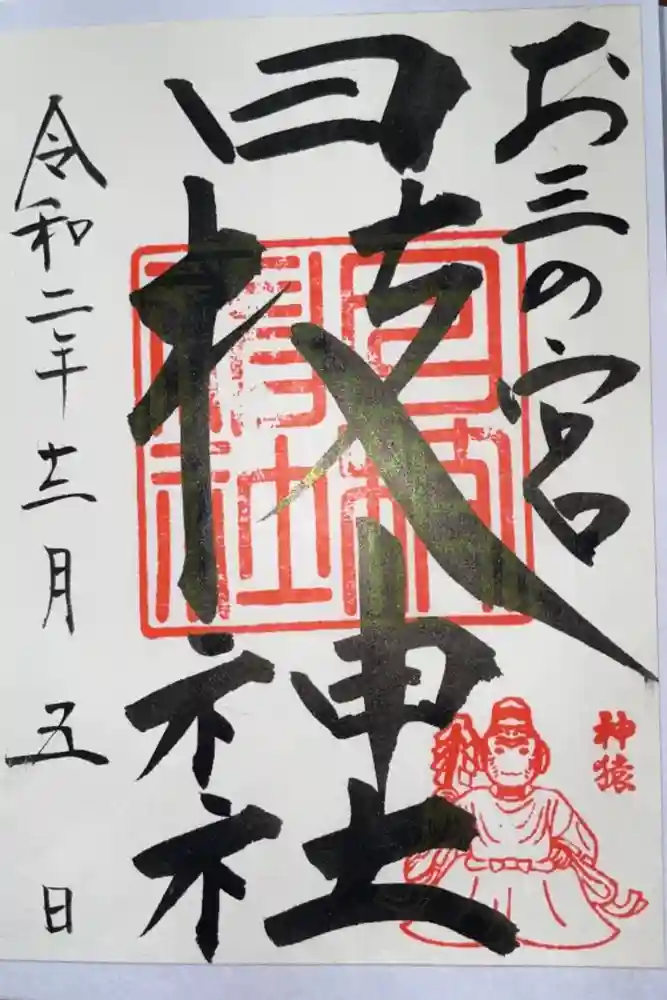 お三の宮
日枝神社
令和二年十二月五日
神猿